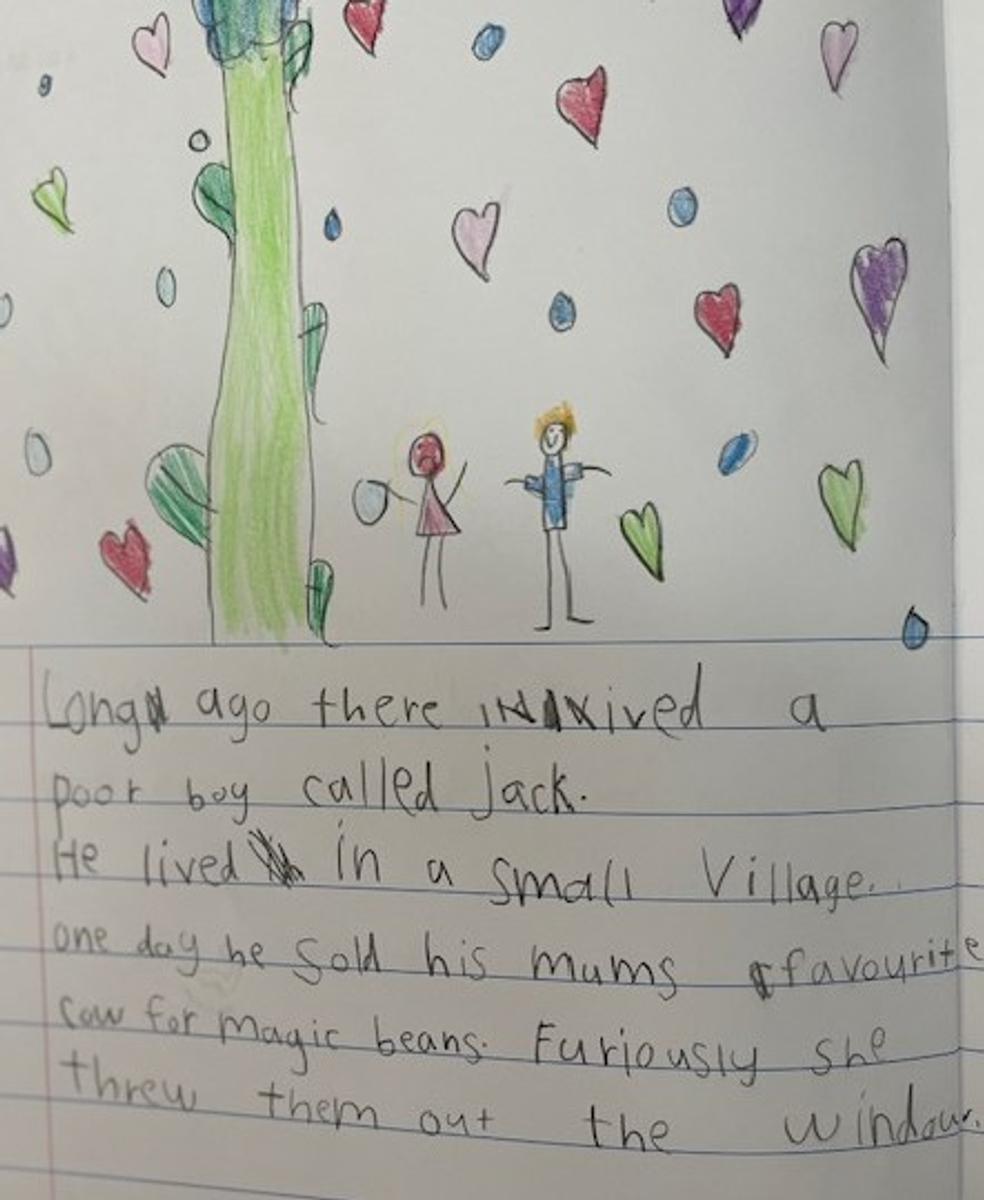 Long ago there lived a
poor boy called jack.
He lived in a small Village.
one day he Sold his mums favourite
cow for magic beans. Furiously she
threw them out the window.